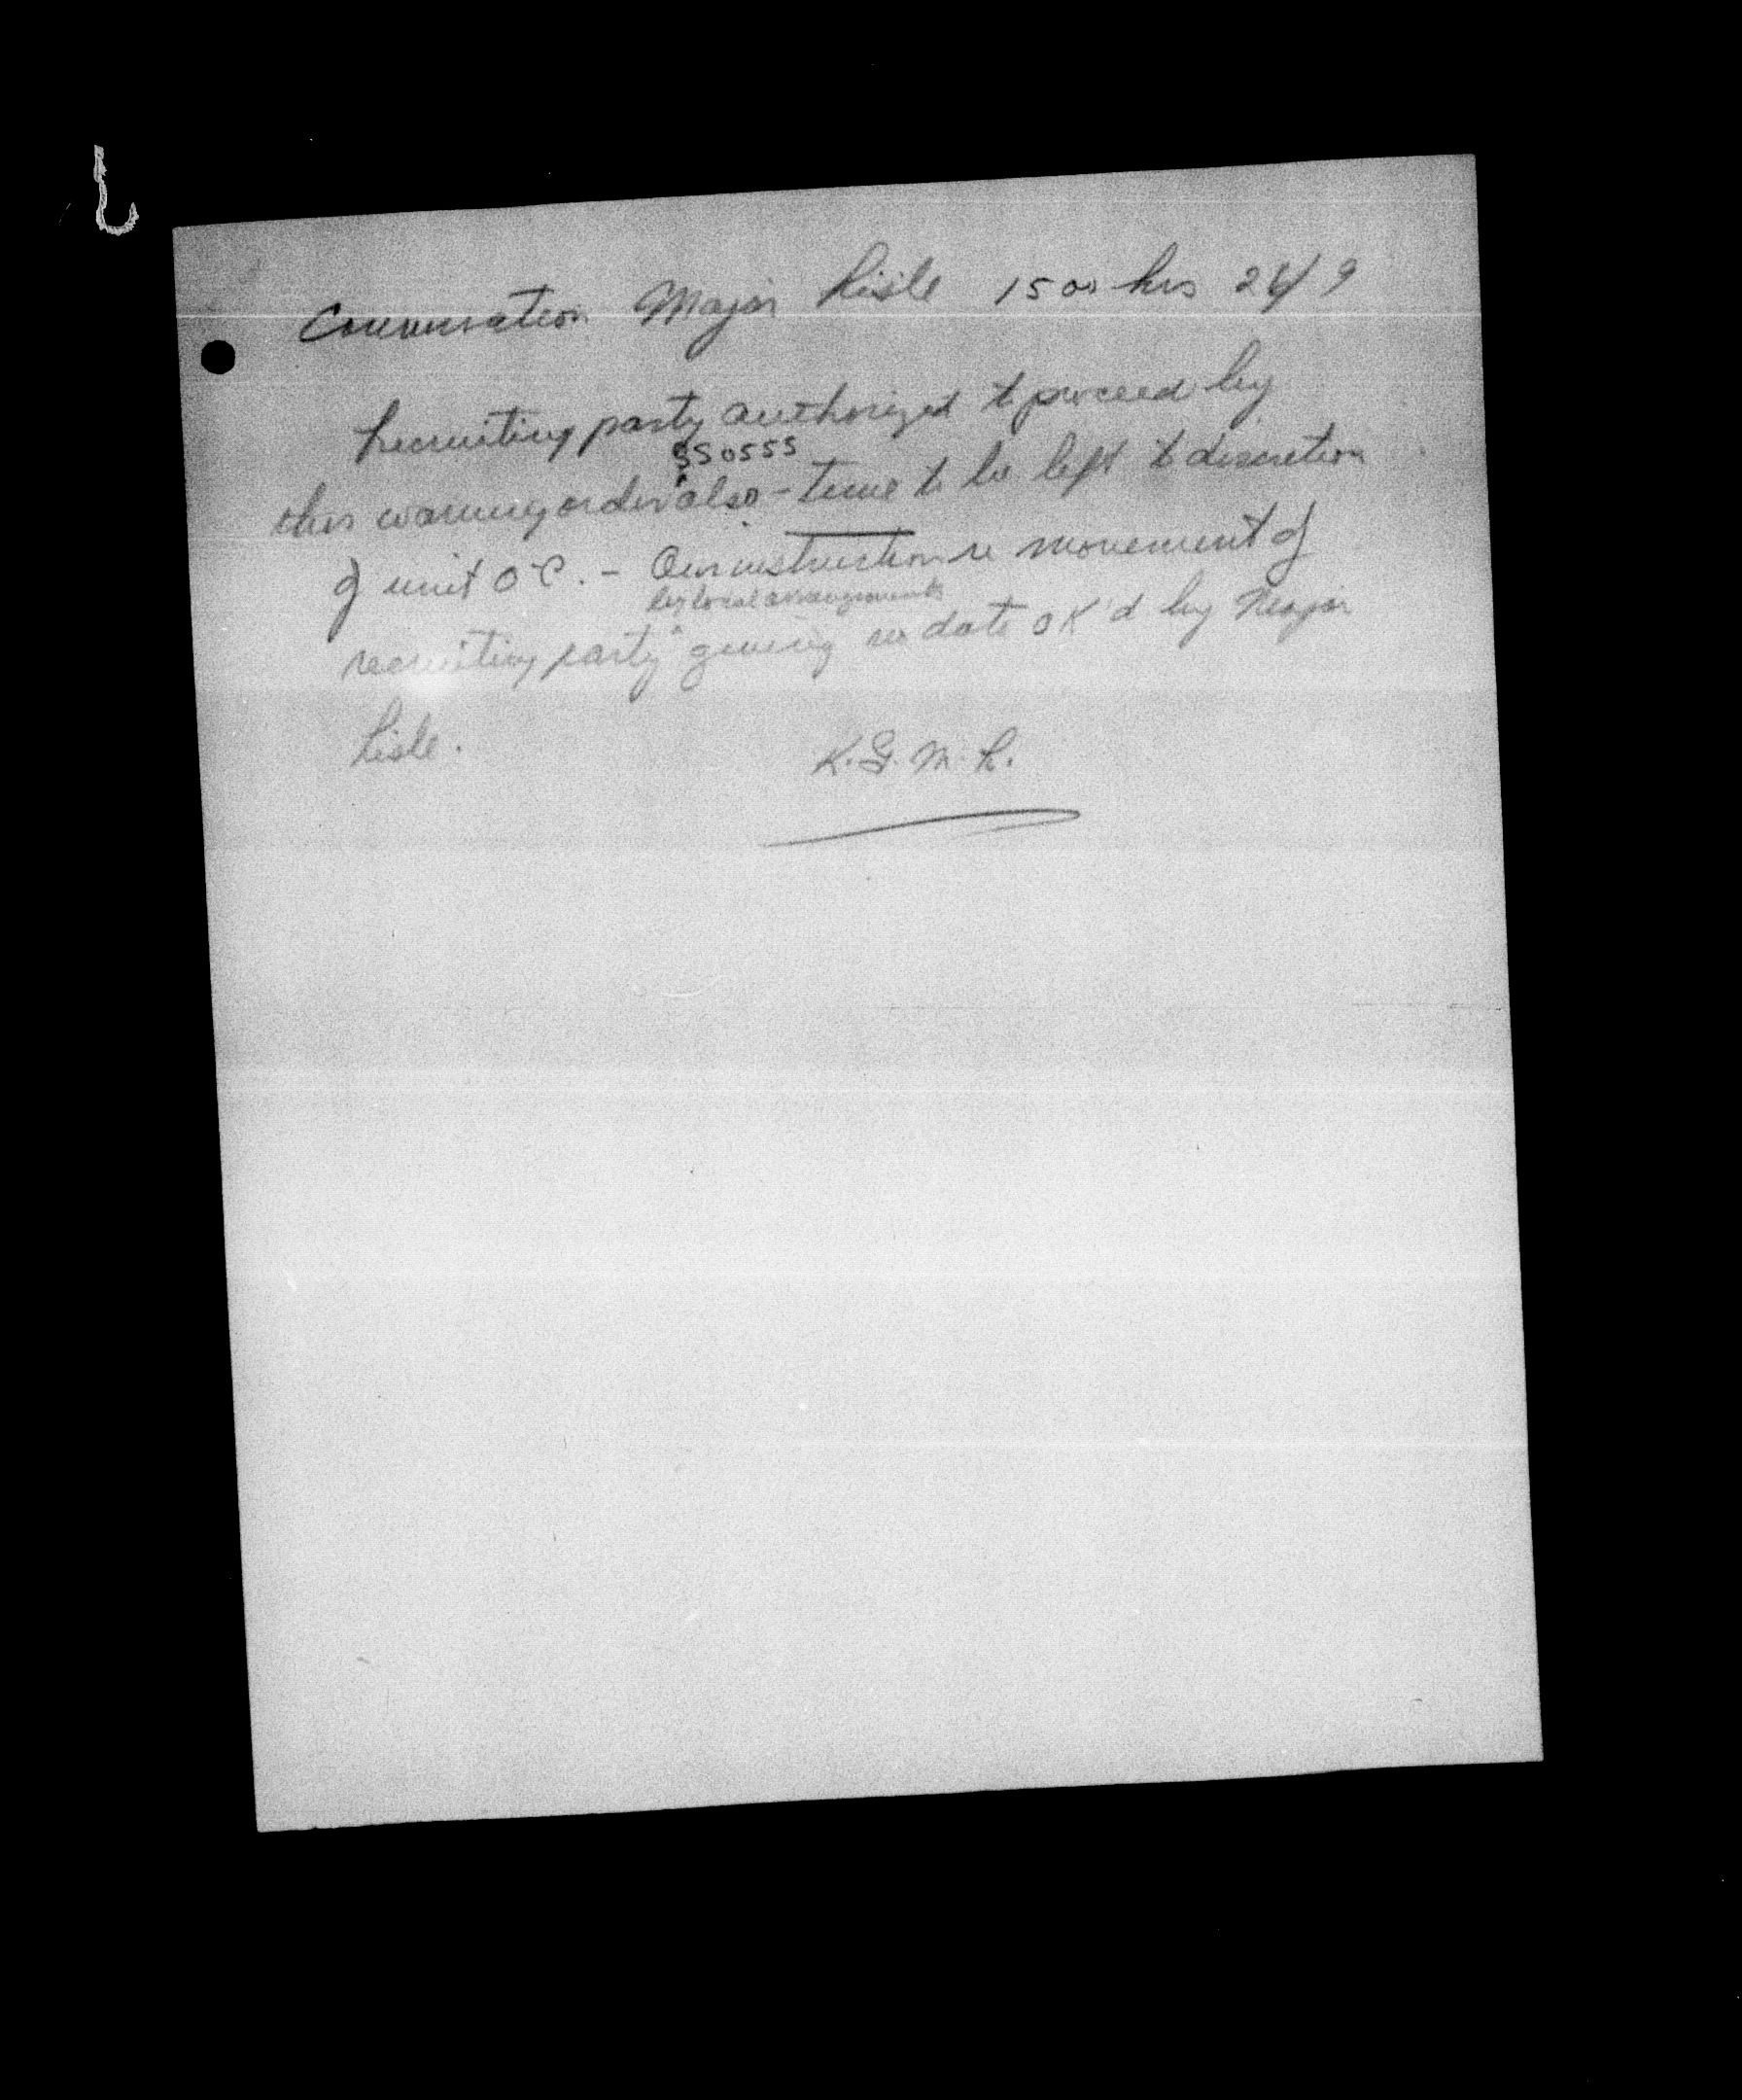 Conversation Major Lisle 1500 hrs 24/9
Recruiting party authorized to proceed by
SS0555
this warning order also - time to be left to discretion
of unit O C. - Our instruction re movement of
by local arrangements
recruiting party giving no date OK'd by Major
Lisle.
K. G. M. L.